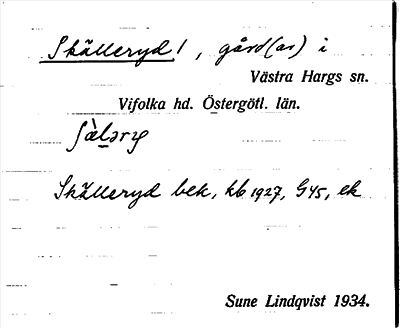 Skälleryd 1, gård(ar) i
Västra Hargs sn.
Vifolka hd. Östergötl. län.
Skälleryd bek, kb 1927, G45, ek
Sune Lindqvist 1934.